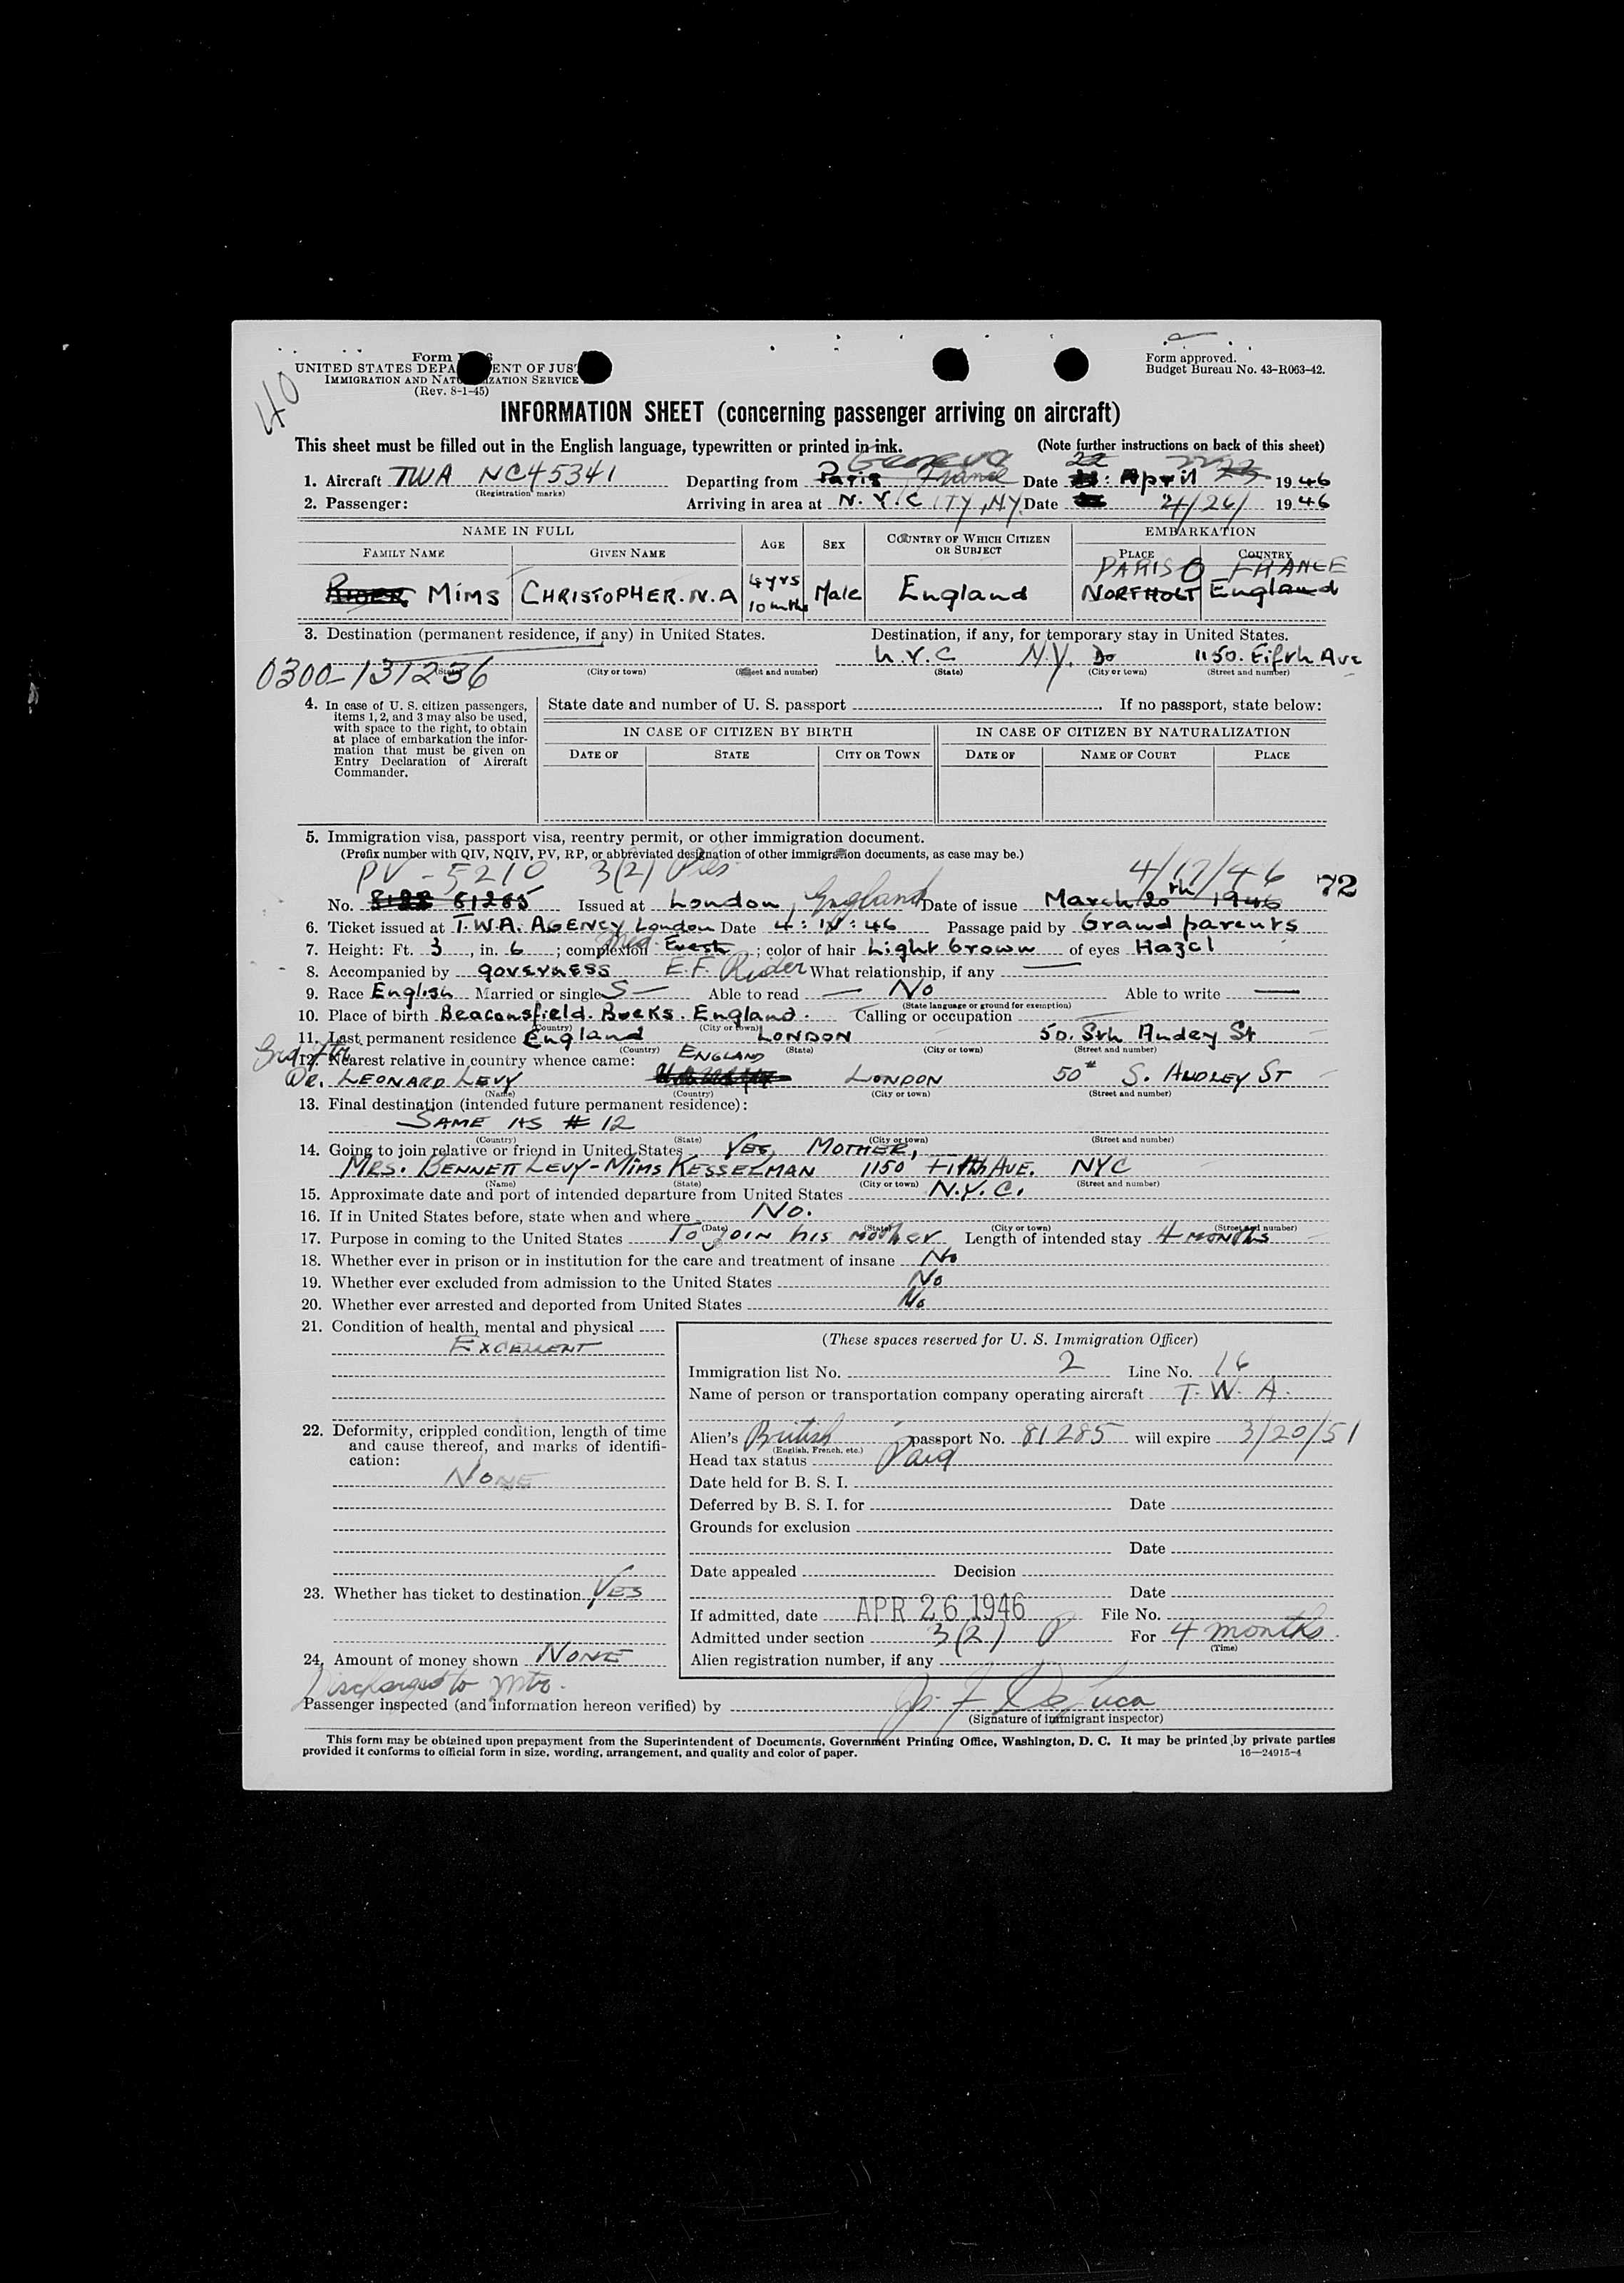 40
Form I-
UNITED STATES DEPA ENT OF JUS
IMMIGRATION AND NATU IZATION SERVICE
(Rev. 8-1-45)
Form approved.
Budget Bureau No. 43-R063-42.
INFORMATION SHEET (concerning passenger arriving on aircraft)
This sheet must be filled out in the English language, typewritten or printed in ink. (Note further instructions on back of this sheet)
Geneva 22
1. Aircraft TWA NC45341 Departing from Paris France Date April 23 1946
(Registration marks)
2. Passenger: Arriving in area at N.Y.C ITY, NY Date 4/26/ 1946
NAME IN FULL AGE SEX COUNTRY OF WHICH CITIZEN OR SUBJECT EMBARKATION
FAMILY NAME GIVEN NAME PLACE COUNTRY
PARIS FRANCE
RIDER Mims CHRISTOPHER.N.A 4 yrs 10 mths Male England NORTHOLT England
3. Destination (permanent residence, if any) in United States. Destination, if any, for temporary stay in United States.
0300-131236 N.Y.C N.Y. Do 1150. Fifth Ave
(State) (City or town) (Street and number) (State) (City or town) (Street and number)
4. In case of U. S. citizen passengers, items 1, 2, and 3 may also be used, with space to the right, to obtain at place of embarkation the information that must be given on Entry Declaration of Aircraft Commander.
State date and number of U. S. passport If no passport, state below:
IN CASE OF CITIZEN BY BIRTH IN CASE OF CITIZEN BY NATURALIZATION
DATE OF STATE CITY OR TOWN DATE OF NAME OF COURT PLACE
5. Immigration visa, passport visa, reentry permit, or other immigration document.
(Prefix number with QIV, NQIV, PV, RP, or abbreviated designation of other immigration documents, as case may be.)
PV - 5210 3(2) 4/17/46 72
No. 81285 Issued at London, England Date of issue March 20th 1946
6. Ticket issued at T.W.A. AGENCY London Date 4:IV:46 Passage paid by Grand parents
7. Height: Ft. 3, in. 6; complexion Med. Fresh; color of hair Light brown of eyes Hazel
8. Accompanied by governess E.F. Rider What relationship, if any —
9. Race English Married or single S — Able to read — No Able to write —
(State language or ground for exemption)
10. Place of birth Beaconsfield. Bucks. England. Calling or occupation
(Country) (City or town)
11. Last permanent residence England LONDON 50. Sth Audley St
(Country) (State) (City or town) (Street and number)
12. Nearest relative in country whence came: ENGLAND
Dr. LEONARD LEVY LONDON 50 S. AUDLEY ST
(Name) (Country) (City or town) (Street and number)
13. Final destination (intended future permanent residence):
SAME AS # 12
(Country) (State) (City or town) (Street and number)
14. Going to join relative or friend in United States YES, MOTHER,
MRS. BENNETT LEVY-MIMS KESSELMAN 1150 FIFTH AVE. NYC
(Name) (State) (City or town) (Street and number)
15. Approximate date and port of intended departure from United States N.Y.C.
16. If in United States before, state when and where No.
(Date) (State) (City or town) (Street and number)
17. Purpose in coming to the United States TO JOIN his mother Length of intended stay 4 MONTHS
18. Whether ever in prison or in institution for the care and treatment of insane No
19. Whether ever excluded from admission to the United States No
20. Whether ever arrested and deported from United States No
21. Condition of health, mental and physical
EXCELLENT
22. Deformity, crippled condition, length of time and cause thereof, and marks of identification:
NONE
23. Whether has ticket to destination YES
24. Amount of money shown NONE
(These spaces reserved for U. S. Immigration Officer)
Immigration list No. 2 Line No. 16
Name of person or transportation company operating aircraft T. W. A.
Alien's British passport No. 81285 will expire 3/20/51
(English, French, etc.)
Head tax status Paid
Date held for B. S. I.
Deferred by B. S. I. for Date
Grounds for exclusion
Date
Date appealed Decision
Date
If admitted, date APR 26 1946 File No.
Admitted under section 3(2) P For 4 months
(Time)
Alien registration number, if any
Discharged to mtr.
Passenger inspected (and information hereon verified) by
(Signature of immigrant inspector)
This form may be obtained upon prepayment from the Superintendent of Documents, Government Printing Office, Washington, D. C. It may be printed by private parties
provided it conforms to official form in size, wording, arrangement, and quality and color of paper. 16—24915-4